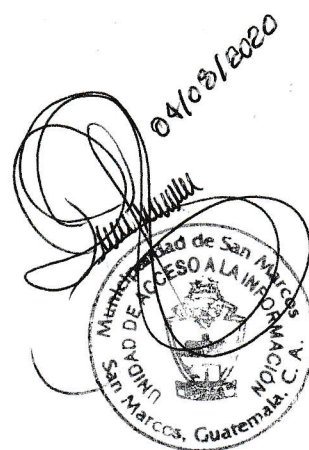 04/08/2020
Municipalidad de San Marcos
UNIDAD DE ACCESO A LA INFORMACIÓN
San Marcos, Guatemala, C. A.